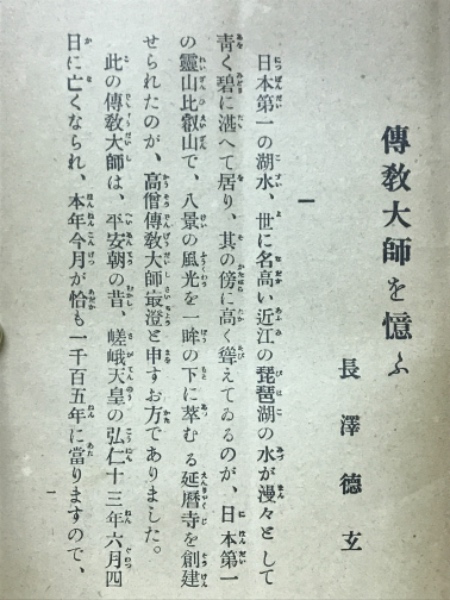 傳敎大師を憶ふ
長澤德玄
一
日本第一の湖水、世に名高い近江の琵琶湖の水が漫々として
靑く碧に湛へて居り、其の傍に高く聳えてゐるのが、日本第一
の靈山比叡山で、八景の風光を一眸の下に萃むる延曆寺を創建
せられたのが、高僧傳敎大師最澄と申すお方でありました。
此の傳敎大師は、平安朝の昔、嵯峨天皇の弘仁十三年六月四
日に亡くなられ、本年今月が恰も一千百五年に當りますので、
一